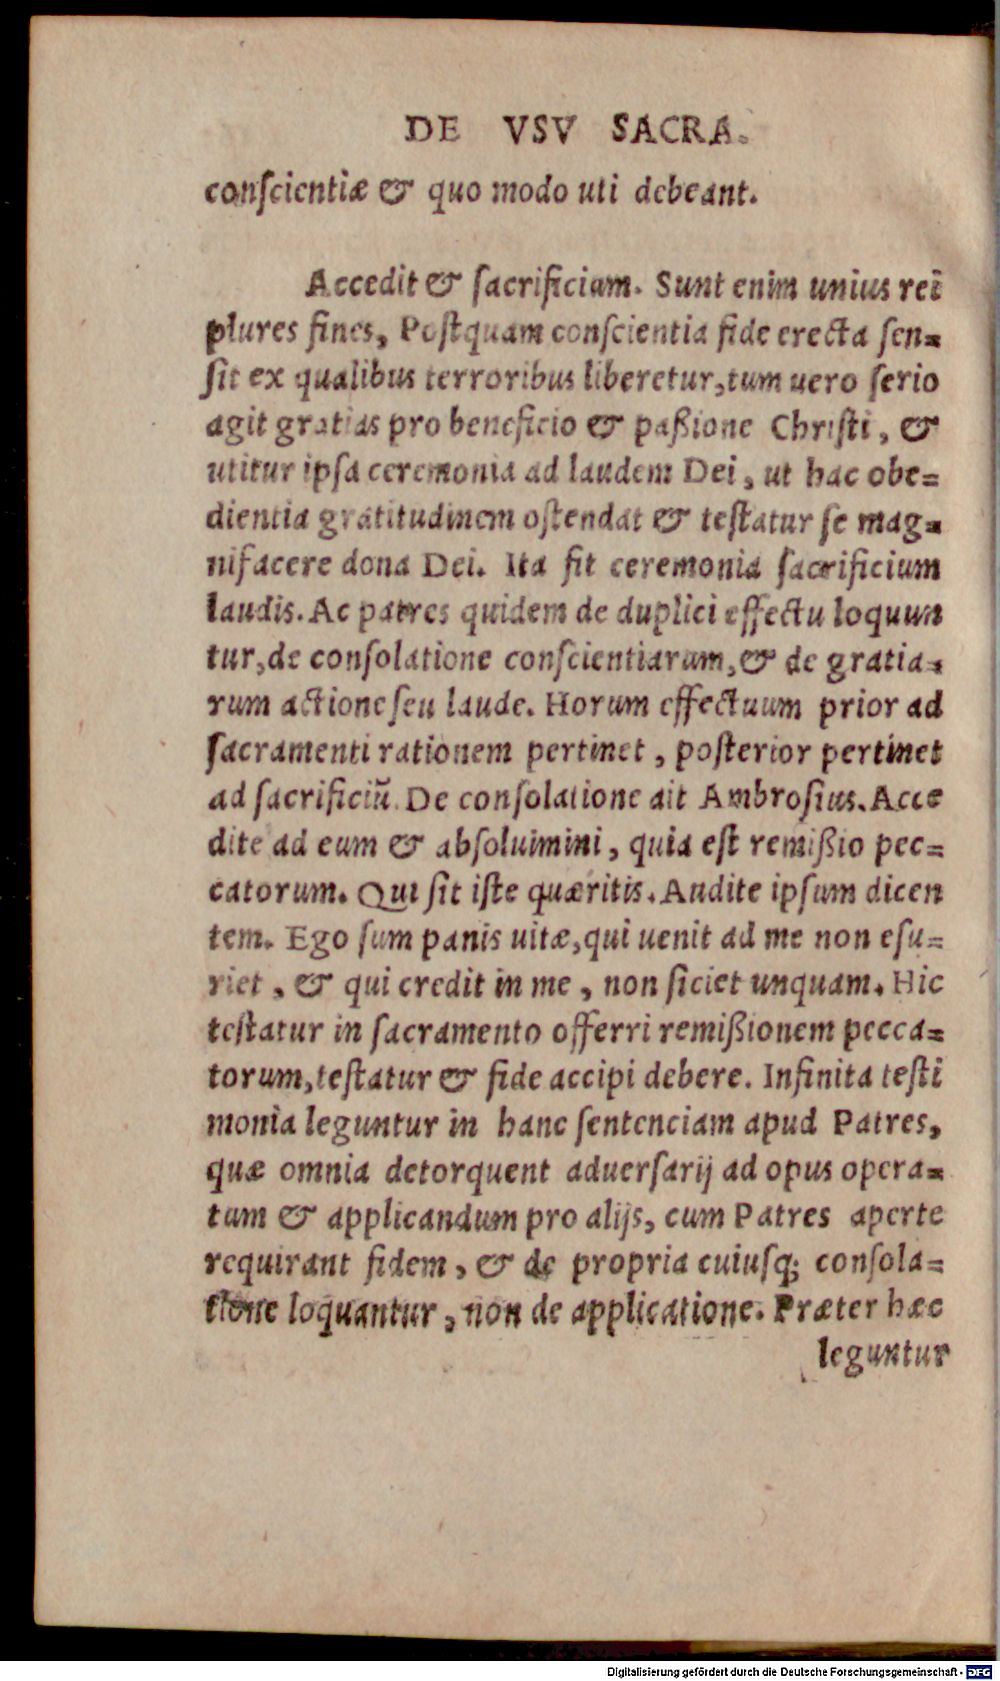 DE VSV SACRA.
conſcientiæ & quo modo uti debeant.
Accedit & ſacrificium. Sunt enim unius rei
plures fines, Poſtquam conſcientia fide erecta ſen-
ſit ex qualibus terroribus liberetur, tum uero ſerio
agit gratias pro beneficio & paßione Chriſti, &
utitur ipſa ceremonia ad laudem Dei, ut hac obe-
dientia gratitudinem oſtendat & teſtatur ſe mag-
nifacere dona Dei. Ita fit ceremonia ſacrificium
laudis. Ac patres quidem de duplici effectu loquun
tur, de conſolatione conſcientiarum, & de gratia-
rum actione ſeu laude. Horum effectuum prior ad
ſacramenti rationem pertinet, poſterior pertinet
ad ſacrificiũ. De conſolatione ait Ambroſius. Acce
dite ad eum & abſoluimini, quia eſt remißio pec-
catorum. Qui ſit iſte quæritis. Audite ipſum dicen
tem. Ego ſum panis uitæ, qui uenit ad me non eſu-
riet, & qui credit in me, non ſiciet unquam. Hic
teſtatur in ſacramento offerri remißionem pecca-
torum, teſtatur & fide accipi debere. Infinita teſti
monia leguntur in hanc ſentenciam apud Patres,
quæ omnia detorquent aduerſarij ad opus opera-
tum & applicandum pro alijs, cum Patres aperte
requirant fidem, & de propria cuiuſq; conſola-
tione loquantur, non de applicatione. Præter hæc
leguntur
Digitalisierung gefördert durch die Deutsche Forschungsgemeinschaft - DFG